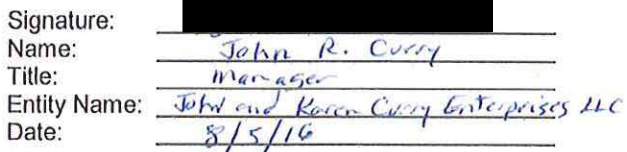 Signature:
Name: John R. Curry
Title: Manager
Entity Name: John and Karen Curry Enterprises LLC
Date: 8/5/16